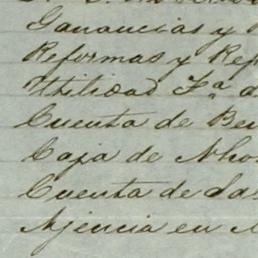 Ganancias y
Reformas y Ref
Utilidad Fª d
Cuenta de Be
Caja de Aho
Cuenta de La
Ajencia en